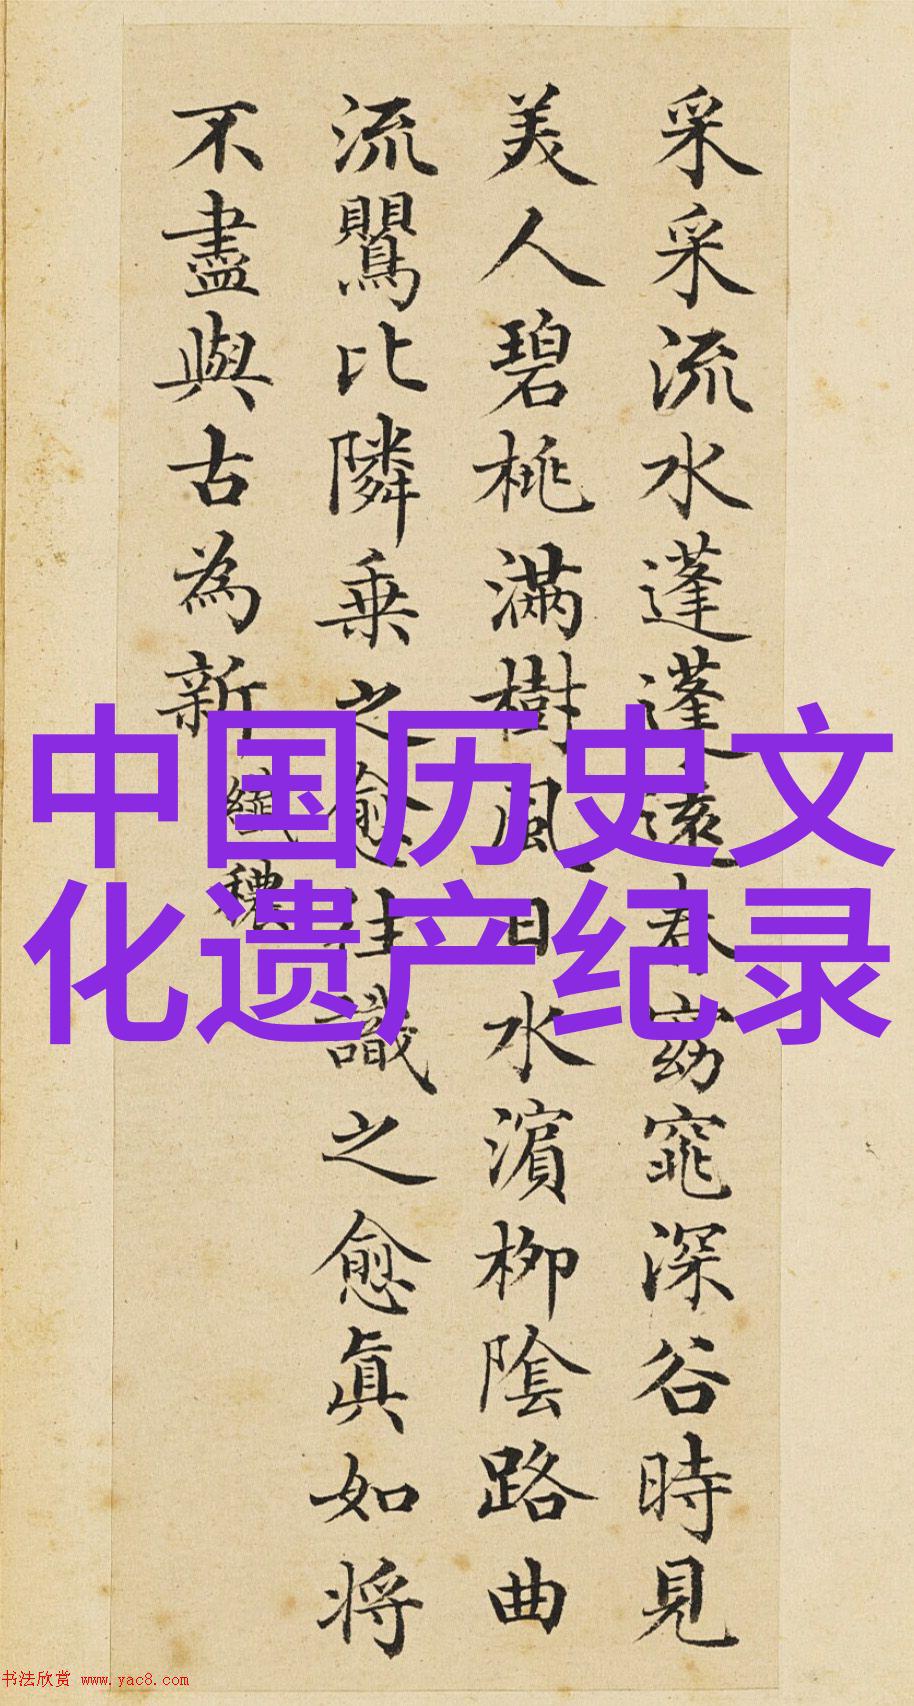 采采流水蓬蓬遠春窈窕深谷時見
美人碧桃滿樹風日水濵柳陰路曲
流鸎比隣乗之愈往識之愈眞如将
不盡與古為新 纖穠
中国历史文
化遗产纪录
书法欣赏 www.yac8.com